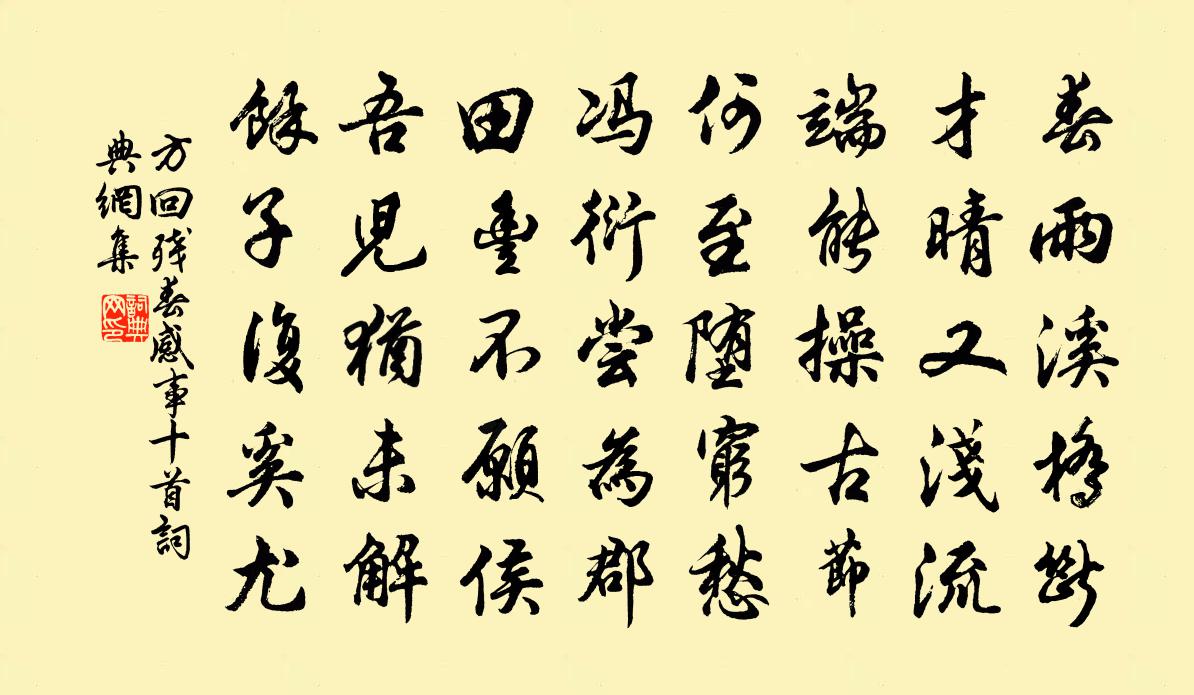 春雨溪橋斷
才晴又淺流
端能操古節
何至堕窮愁
冯衍尝為郡
田豊不願侯
吾児猶未解
餘子復奚尤
方回残春感事十首詞
典網集
詞典网印